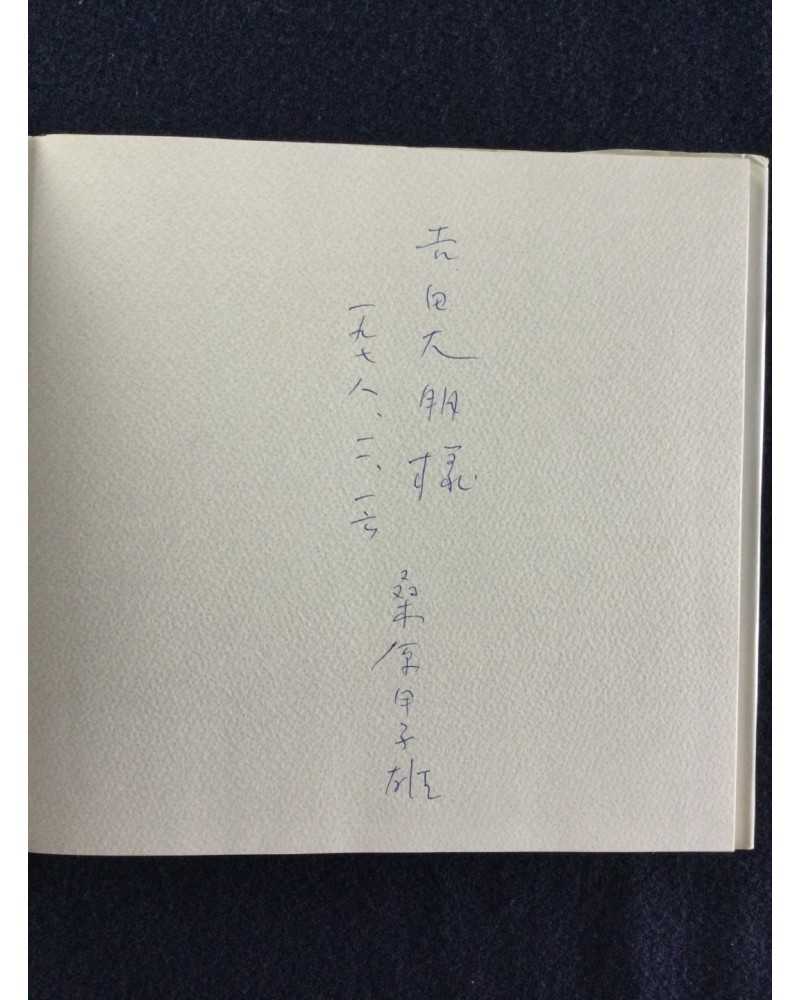 吉田大朋様
桑原甲子雄
一九七八、二、一六